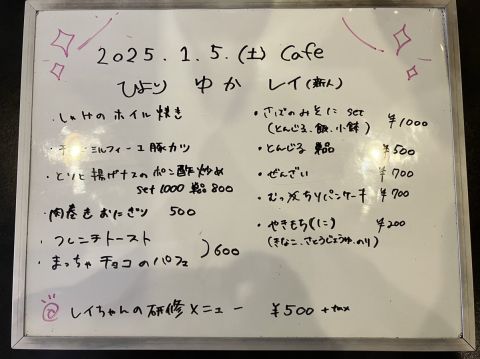 2025.1.5.(土) Cafe
ひより ゆか レイ(新人)
・しゃけのホイル焼き
・チーズミルフィーユ豚カツ
・とりと揚げナスのポン酢炒め
set 1000 単品 800
・肉巻きおにぎり 500
・フレンチトースト
・まっちゃチョコのパフェ
)600
・さばのみそに set
(とんじる、飯、小鉢) ¥1000
・とんじる 単品 ¥500
・ぜんざい ¥700
・むっちりパンケーキ ¥700
・やきもち(1こ) ¥200
(きなこ、さとうじょうゆ、のり)
レイちゃんの研修メニュー ¥500 + tax